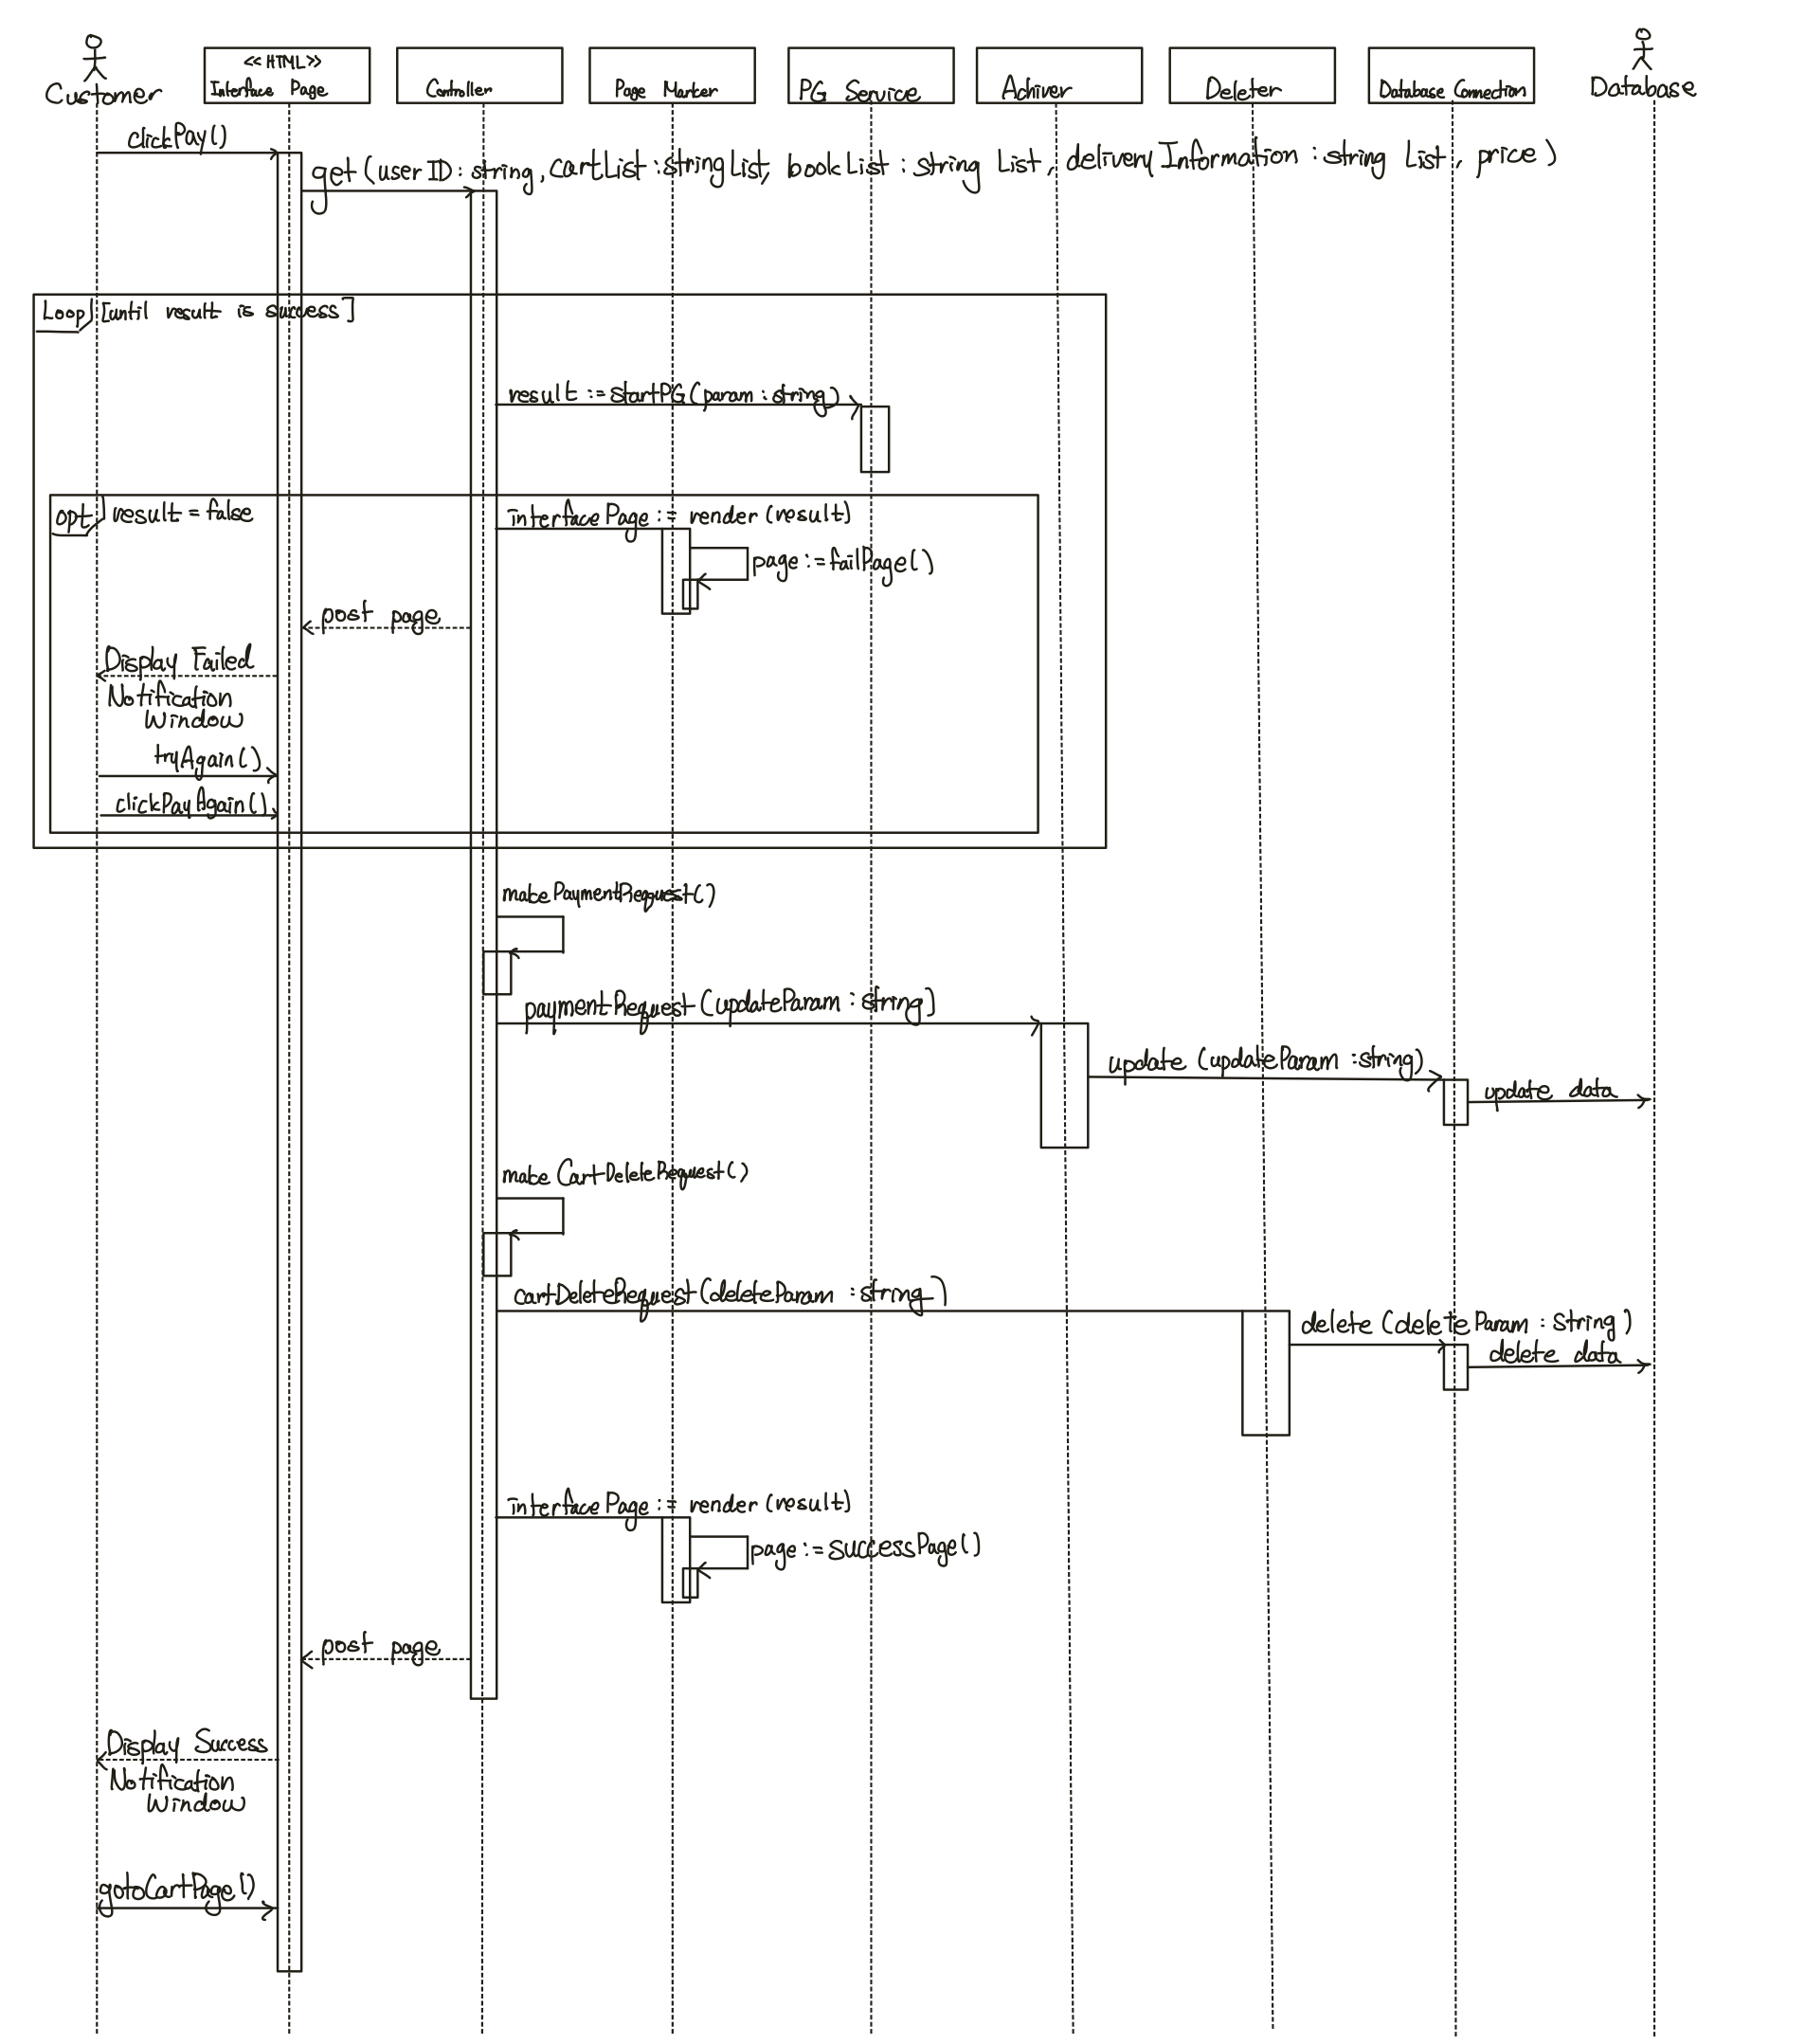 Customer
<< HTML >>
Interface Page
Controller
Page Marker
PG Service
Achiver
Deleter
Database Connection
Database
clickPay()
get (userID : string, cartList : string List, bookList : string List, deliveryInformation : string List, price)
Loop [until result is success]
result := startPG(param : string)
opt result = false
interfacePage := render (result)
page := failPage()
post page
Display Failed
Notification
Window
tryAgain()
clickPayAgain()
makePaymentRequest()
paymentRequest(updateParam : string)
update (updateParam : string)
update data
make CartDeleteRequest()
cartDeleteRequest(deleteParam : string)
delete (deleteParam : string)
delete data
interfacePage := render (result)
page := successPage()
post page
Display Success
Notification
Window
gotoCartPage()